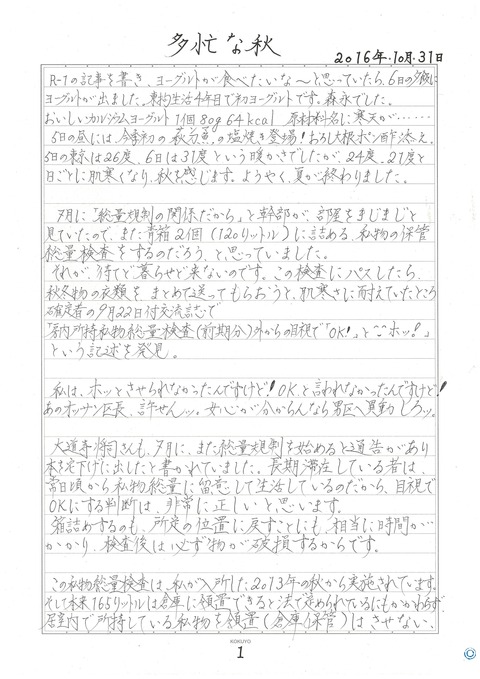 多忙な秋
2016年.10月.31日
R-1の記事を書き、ヨーグルトが食べたいな〜と思っていたら、6日の夕飯に
ヨーグルトが出ました。東拘生活4年目で初ヨーグルトです。森永でした。
おいしいカルシウムヨーグルト1個80g 64kcal 原材料名に寒天が……
5日の昼には、今季初の秋刀魚の塩焼き登場!おろし大根ポン酢添え。
5日の東京は26度、6日は31度という暖かさでしたが、24度、21度と
日ごとに肌寒くなり、秋を感じます。ようやく、夏が終わりました。
月に「総量規制の関係だから」と幹部が、部屋をまじまじと
見ていたので、また青箱2個(120リットル)に詰める、私物の保管
総量検査をするのだろう、と思っていました。
それが、待てど暮らせど来ないのです。この検査にパスしたら、
秋冬物の衣類を、まとめて送ってもらおうと、肌寒さに耐えていたところ
確定者の9月22日付交流誌で
「居内所持私物総量検査(前期分)外からの目視で「OK!」とホッ!」
という記述を発見。
私は、ホッとさせられなかったんですけど!OKと言われなかったんですけど!
あのオッサン区長、許せんッ。女心が分からんなら男区へ異動しろッ。
大道寺将司さんも、月に、また総量規制を始めると通告があり
本を宅下げに出したと書かれていました。長期滞在している者は、
常日頃から私物総量に留意して生活しているのだから、目視で
OKにする判断は、非常に正しいと思います。
箱詰めするのも、所定の位置に戻すことにも、相当に時間が…
かかり、検査後は必ず物が破損するからです。
この私物総量検査は、私が入所した2013年の秋から実施されています。
そして本来165リットルは倉庫に領置できると法で定められているにもかかわらず、
居室内で所持している私物を領置(倉庫保管)はさせない、
KOKUYO
1